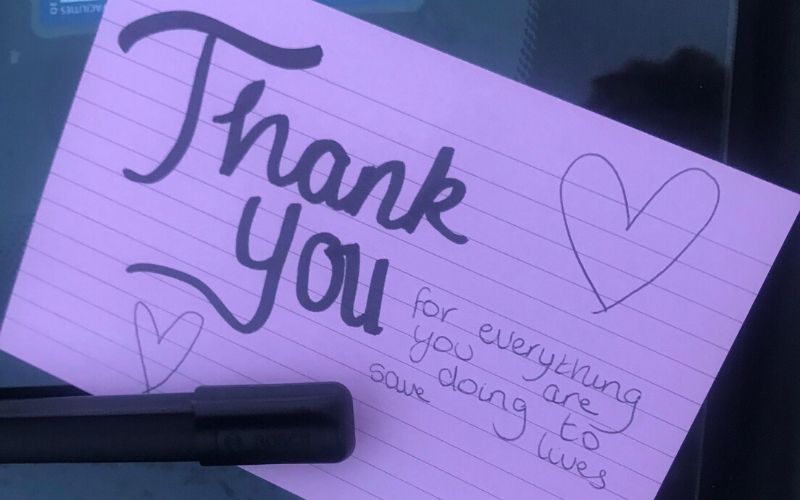 Thank
you
for everything
you are
doing to
save lives
BOSCH
FACILITIES